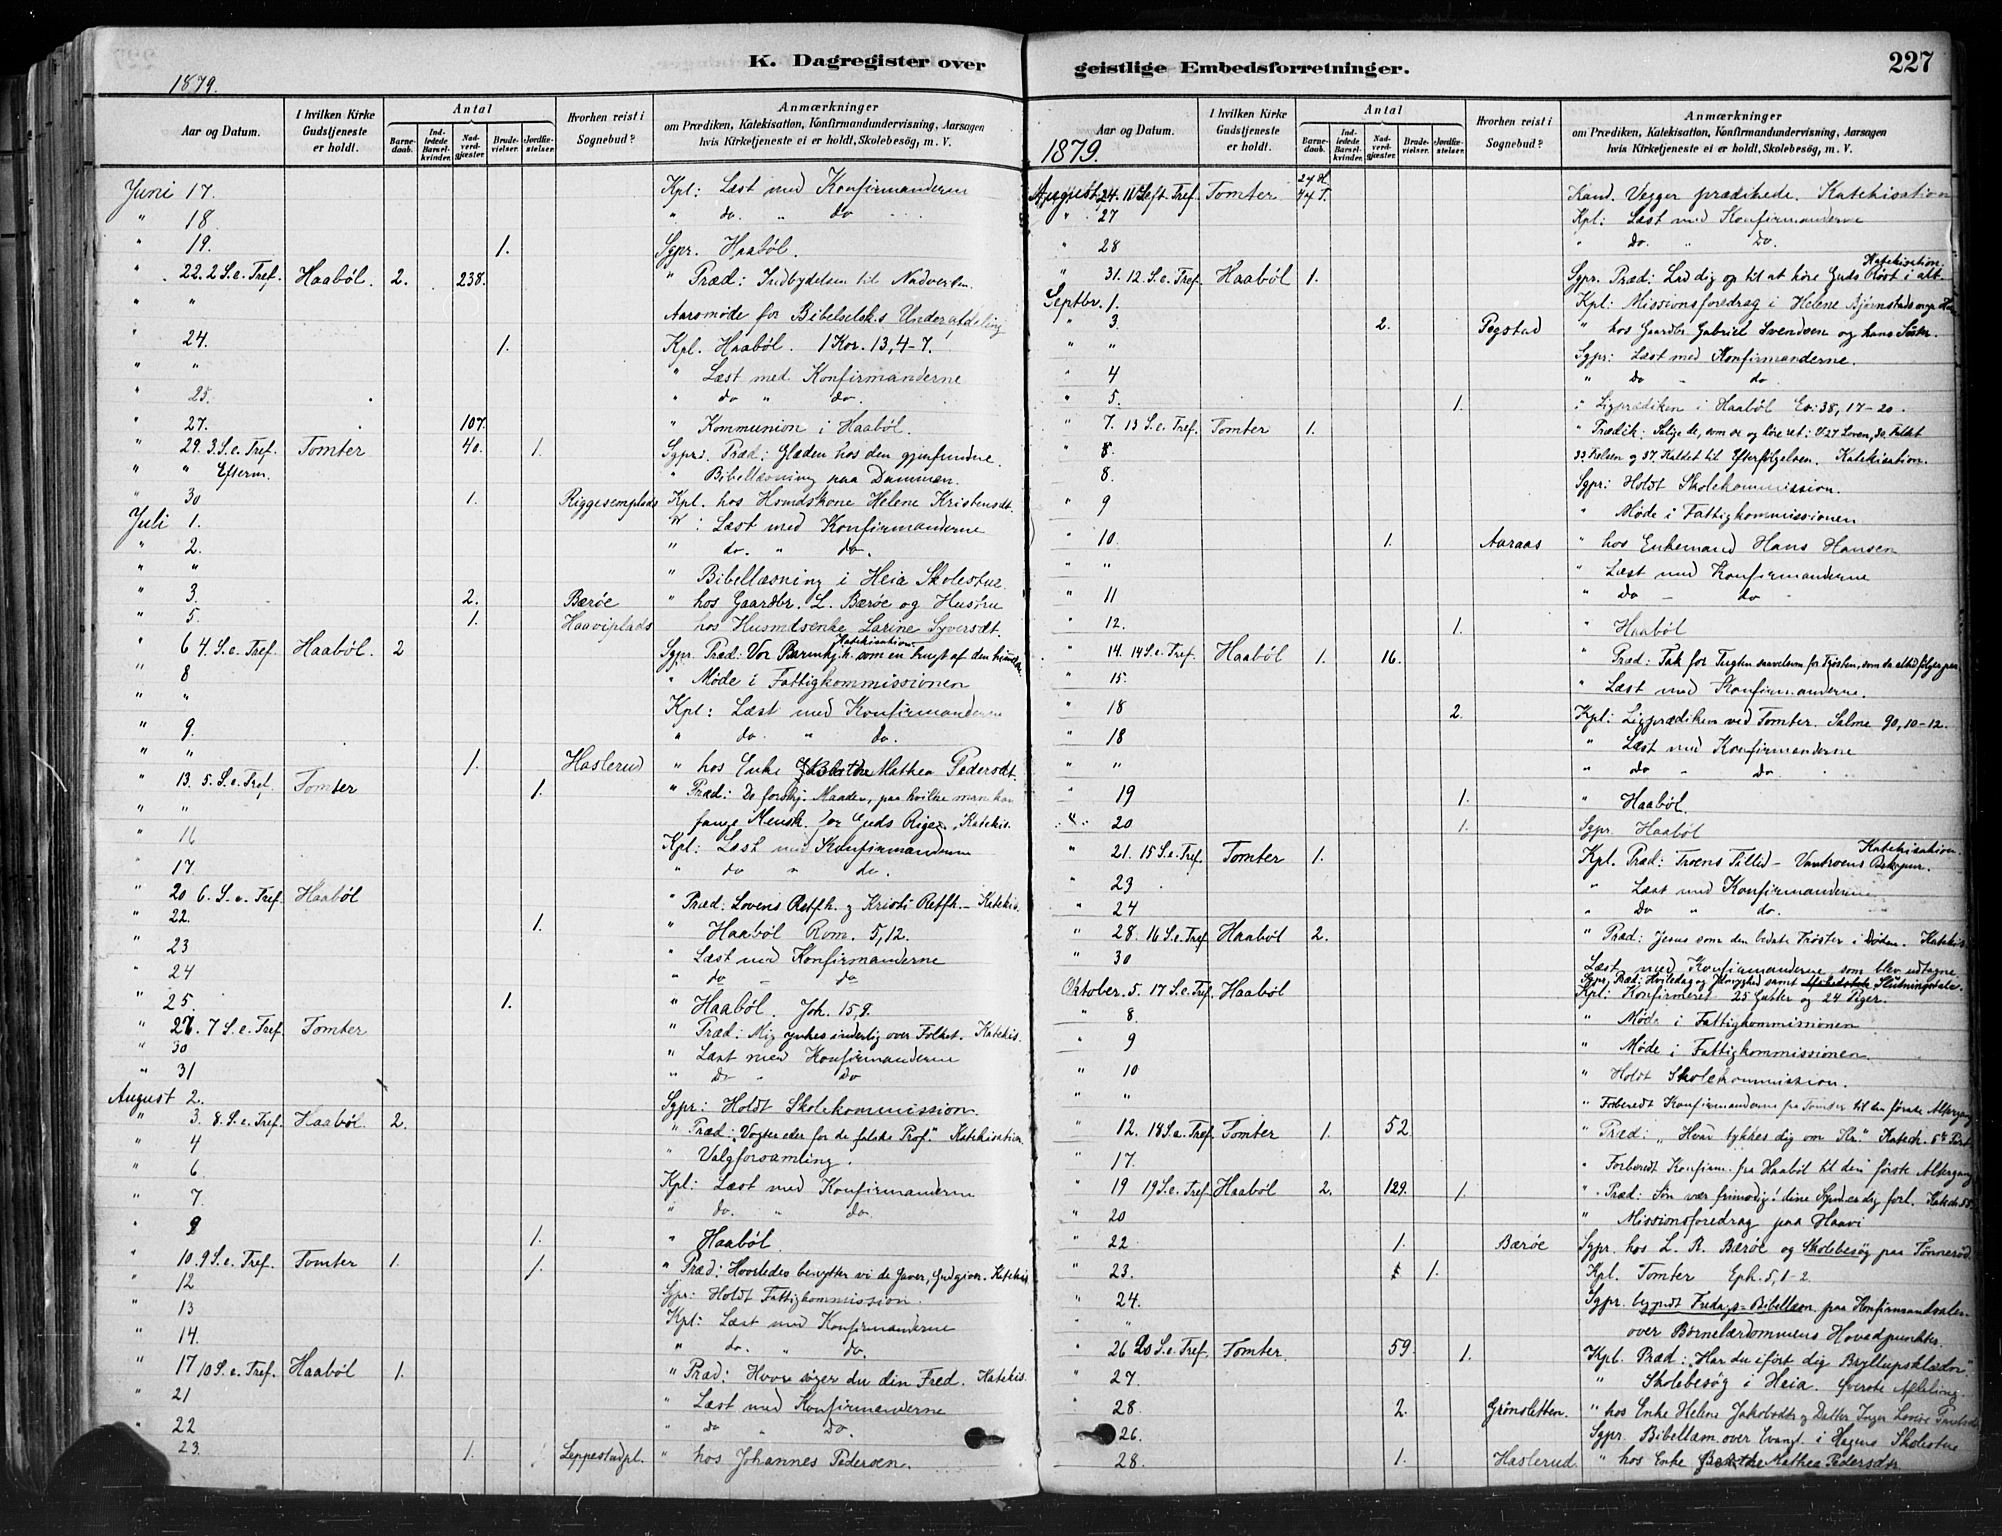 K. Dagregister over
1879.
Aar og Datum.
I hvilken Kirke Gudstjeneste er holdt.
Antal
Barnedaab.
Indledede Barselkvinder.
Nadverdgjæster.
Brudevielser.
Jordfæstelser.
Hvorhen reist i Sognebud?
Anmærkninger
om Prædiken, Katekisation, Konfirmandundervisning, Aarsagen
hvis Kirketjeneste ei er holdt, Skolebesøg, m. V.
Juni 17. Kpl: Læst med Konfirmanderne
" 18 " do. " do
" 19. 1. Sgpr. Haabøl.
" 22. 2 S. e. Tref. Haabøl. 2. 238. " Præd: Indbydelsen til Nadveren.
" " Aarsmøde for Bibelselsk.s Underafdeling
" 24. 1. Kpl. Haabøl. 1 Kor. 13, 4-7.
" " " Læst med Konfirmanderne
" 25. " do " do.
" 27. 107. " Kommunion i Haabøl
" 29. 3. S. e. Tref. Tomter 40. 1. Sgpr. Præd: Glæden hos den gjenfundne.
" " Efterm. " Bibellæsning paa Dammen.
" 30 1. Riggesemplads Kpl. hos Husmdskone Helene Kristensdt.
Juli 1. " : Læst med Konfirmanderne
" 2. " do. " do.
" " " Bibellæsning i Heia Skolestue.
" 3. 2. Bærøe " hos Gaardbr. L. Bærøe og Hustru
" 5. 1. Haaviplads hos Husmdsenke Larine Syversdt.
" 6 4. S. e. Tref. Haabøl. 2 Sgpr. Præd: Vor Barmhj.h. som en Frugt af den himmelske Katekisation
" 8 " Møde i Fattigkommissionen
" " Kpl: Læst med Konfirmanderne
" 9. " do. " do.
" " 1. Haslerud " hos Enke Mathea Pedersdt.
" 13. 5. S. e. Tref. Tomter 1. " Præd: De forskj. Maader, paa hvilke man kan
" " fange Mensk. for Guds Rige. Katekis.
" 16 Kpl: Læst med Konfirmanderne
" 17. " do " do.
" 20 6. S. e. Tref. Haabøl " Præd: Lovens Retfh. og Kristi Retfh. - Katekis.
" 22. 1. " Haabøl Rom. 5, 12.
" 23 " Læst med Konfirmanderne
" 24 " do " do
" 25. 1. " Haabøl. Joh. 15, 9.
" 27. 7 S. e. Tref. Tomter " Præd: Mig ynkes inderlig over Folket. Katekis.
" 30 " Læst med Konfirmanderne
" 31 " Do " Do
August 2. Sgpr: Holdt Skolekommission.
" 3. 8. S. e. Tref. Haabøl. 2. " Præd: "Vogter eder for de falske Prof." Katekisation
" 4 " Valgforsamling.
" 6 Kpl: Læst med Konfirmanderne
" 7 " do. " do.
" 9 1. " Haabøl.
" 10. 9 S. e. Tref. Tomter 1. 1. " Præd: Hvorledes benytter vi de Gaver, Gud giver. Katekis
" 12 Sgpr: Holdt Fattigkommission.
" 13 Kpl: Læst med Konfirmanderne
" 14. " do. " do.
" 17 10 S. e. Tref. Haabøl 1. " Præd: Hvor søger du din Fred. Katekis.
" 21 " Læst med Konfirmanderne
" 22 " do " Do.
" 23. 1. Leppestadpl. " hos Johannes Pedersen.
geistlige Embedsforretninger.
227
1879.
Aar og Datum.
I hvilken Kirke Gudstjeneste er holdt.
Antal
Barnedaab.
Indledede Barselkvinder.
Nadverdgjæster.
Brudevielser.
Jordfæstelser.
Hvorhen reist i Sognebud?
Anmærkninger
om Prædiken, Katekisation, Konfirmandundervisning, Aarsagen
hvis Kirketjeneste ei er holdt, Skolebesøg, m. V.
August 24. 11 S. eft. Tref. Tomter Kand. Vegger prædikede. Katekisation
" 27 Kpl: Læst med Konfirmanderne
" 28 " Do. " Do.
" 31. 12. S. e. Tref. Haabøl 1. Sgpr. Præd: Lad dig op til at høre Guds Røst i alt Katekisation.
Septbr. 1. Kpl: Missionsforedrag i Helene Bjørnstads
" 3. 2. Pegstad " hos Gaardbr. Gabriel Svendsen og hans Søster.
" " Sgpr: Læst med Konfirmanderne.
" 4 " Do " do
" 5. 1. " Ligprædiken i Haabøl Es. 38, 17-20.
" 7. 13 S. e. Tref. Tomter 1. " Prædik: Salige de, som se og høre ret:
" 8. Kaldet til Efterfølgelsen. Katekisation.
" 8. Sgpr: Holdt Skolekommission.
" 9 " Møde i Fattigkommissionen
" 10. 1. Aaraas " hos Enkemand Hans Hansen
" " " Læst med Konfirmanderne
" 11 " Do - do
" 12. 1. " Haabøl
" 14. 14 S. e. Tref. Haabøl 1. 16. " Præd: Tak for Tugten saavelsom for Trøsten, som da altid følger paa
" 15. " Læst med Konfirmanderne.
" 18 2. Kpl: Ligprædiken ved Tomter. Salme 90, 10-12.
" 18 " Læst med Konfirmanderne
" " " do " Do
" 19 1. " Haabøl
" 20 1. Sgpr. Haabøl
" 21. 15 S. e. Tref. Tomter 1. Kpl. Præd: Troens Tillid - Vantroens Bekymr. Katekisation.
" 23 " Læst med Konfirmanderne
" 24 " Do " do.
" 28. 16 S. e. Tref. Haabøl 2. " Præd: Jesus som den bedste Trøster i Døden. Katekis
" 30 Læst med Konfirmanderne som blev udtagne.
Oktober. 5. 17 S. e. Tref. Haabøl Sgpr. Præd: Hviledag og Ydmyghed samt Slutningstale.
Kpl: Konfirmeret 25 Gutter og 24 Piger.
" 8. " Møde i Fattigkommissionen
" 9 " Møde i Fattigkommissionen.
" 10 " Holdt Skolekommission.
" " " Forberedt Konfirmanderne fra Tomter til den første Altergang
" 12. 18 S. e. Tref. Tomter 1. 52. " Præd: "Hvad tykkes dig om Kr." Katech. 5te Part
" 17. " Forberedt Konfirm. fra Haabøl til den første Altergang
" 19 19 S. e. Tref. Haabøl 2. 129. 1. " Præd: Søn vær frimodig! dine Synd. er dig forl.
" 20 " Missionsforedrag paa Haavi
" 22 1. Bærøe Sgpr. hos L. R. Bærøe og Skolebesøg paa Tønnerød
" 23. 1. Kpl. Tomter Eph. 5, 1-2.
" 24. Sgpr. begyndt Fredags-Bibellæsn. paa Konfirmandsalen
" over Børnelærdommens Hovedpunkter.
" 26 20 S. e. Tref. Tomter. 59. 1. Kpl. Præd: "Har du iført dig Bryllupsklædn."
" 27. " Skolebesøg i Heia. Øverste Afdeling
" 28. 2. Grønsletten. " hos Enke Helene Jakobsdtr og Datter Inger Lovise
" 26. Sgpr. Bibellæsn. over Evangl. i Hagens Skolestue
" 28. 1. Haslerud " hos Enke Mathea Pedersdtr